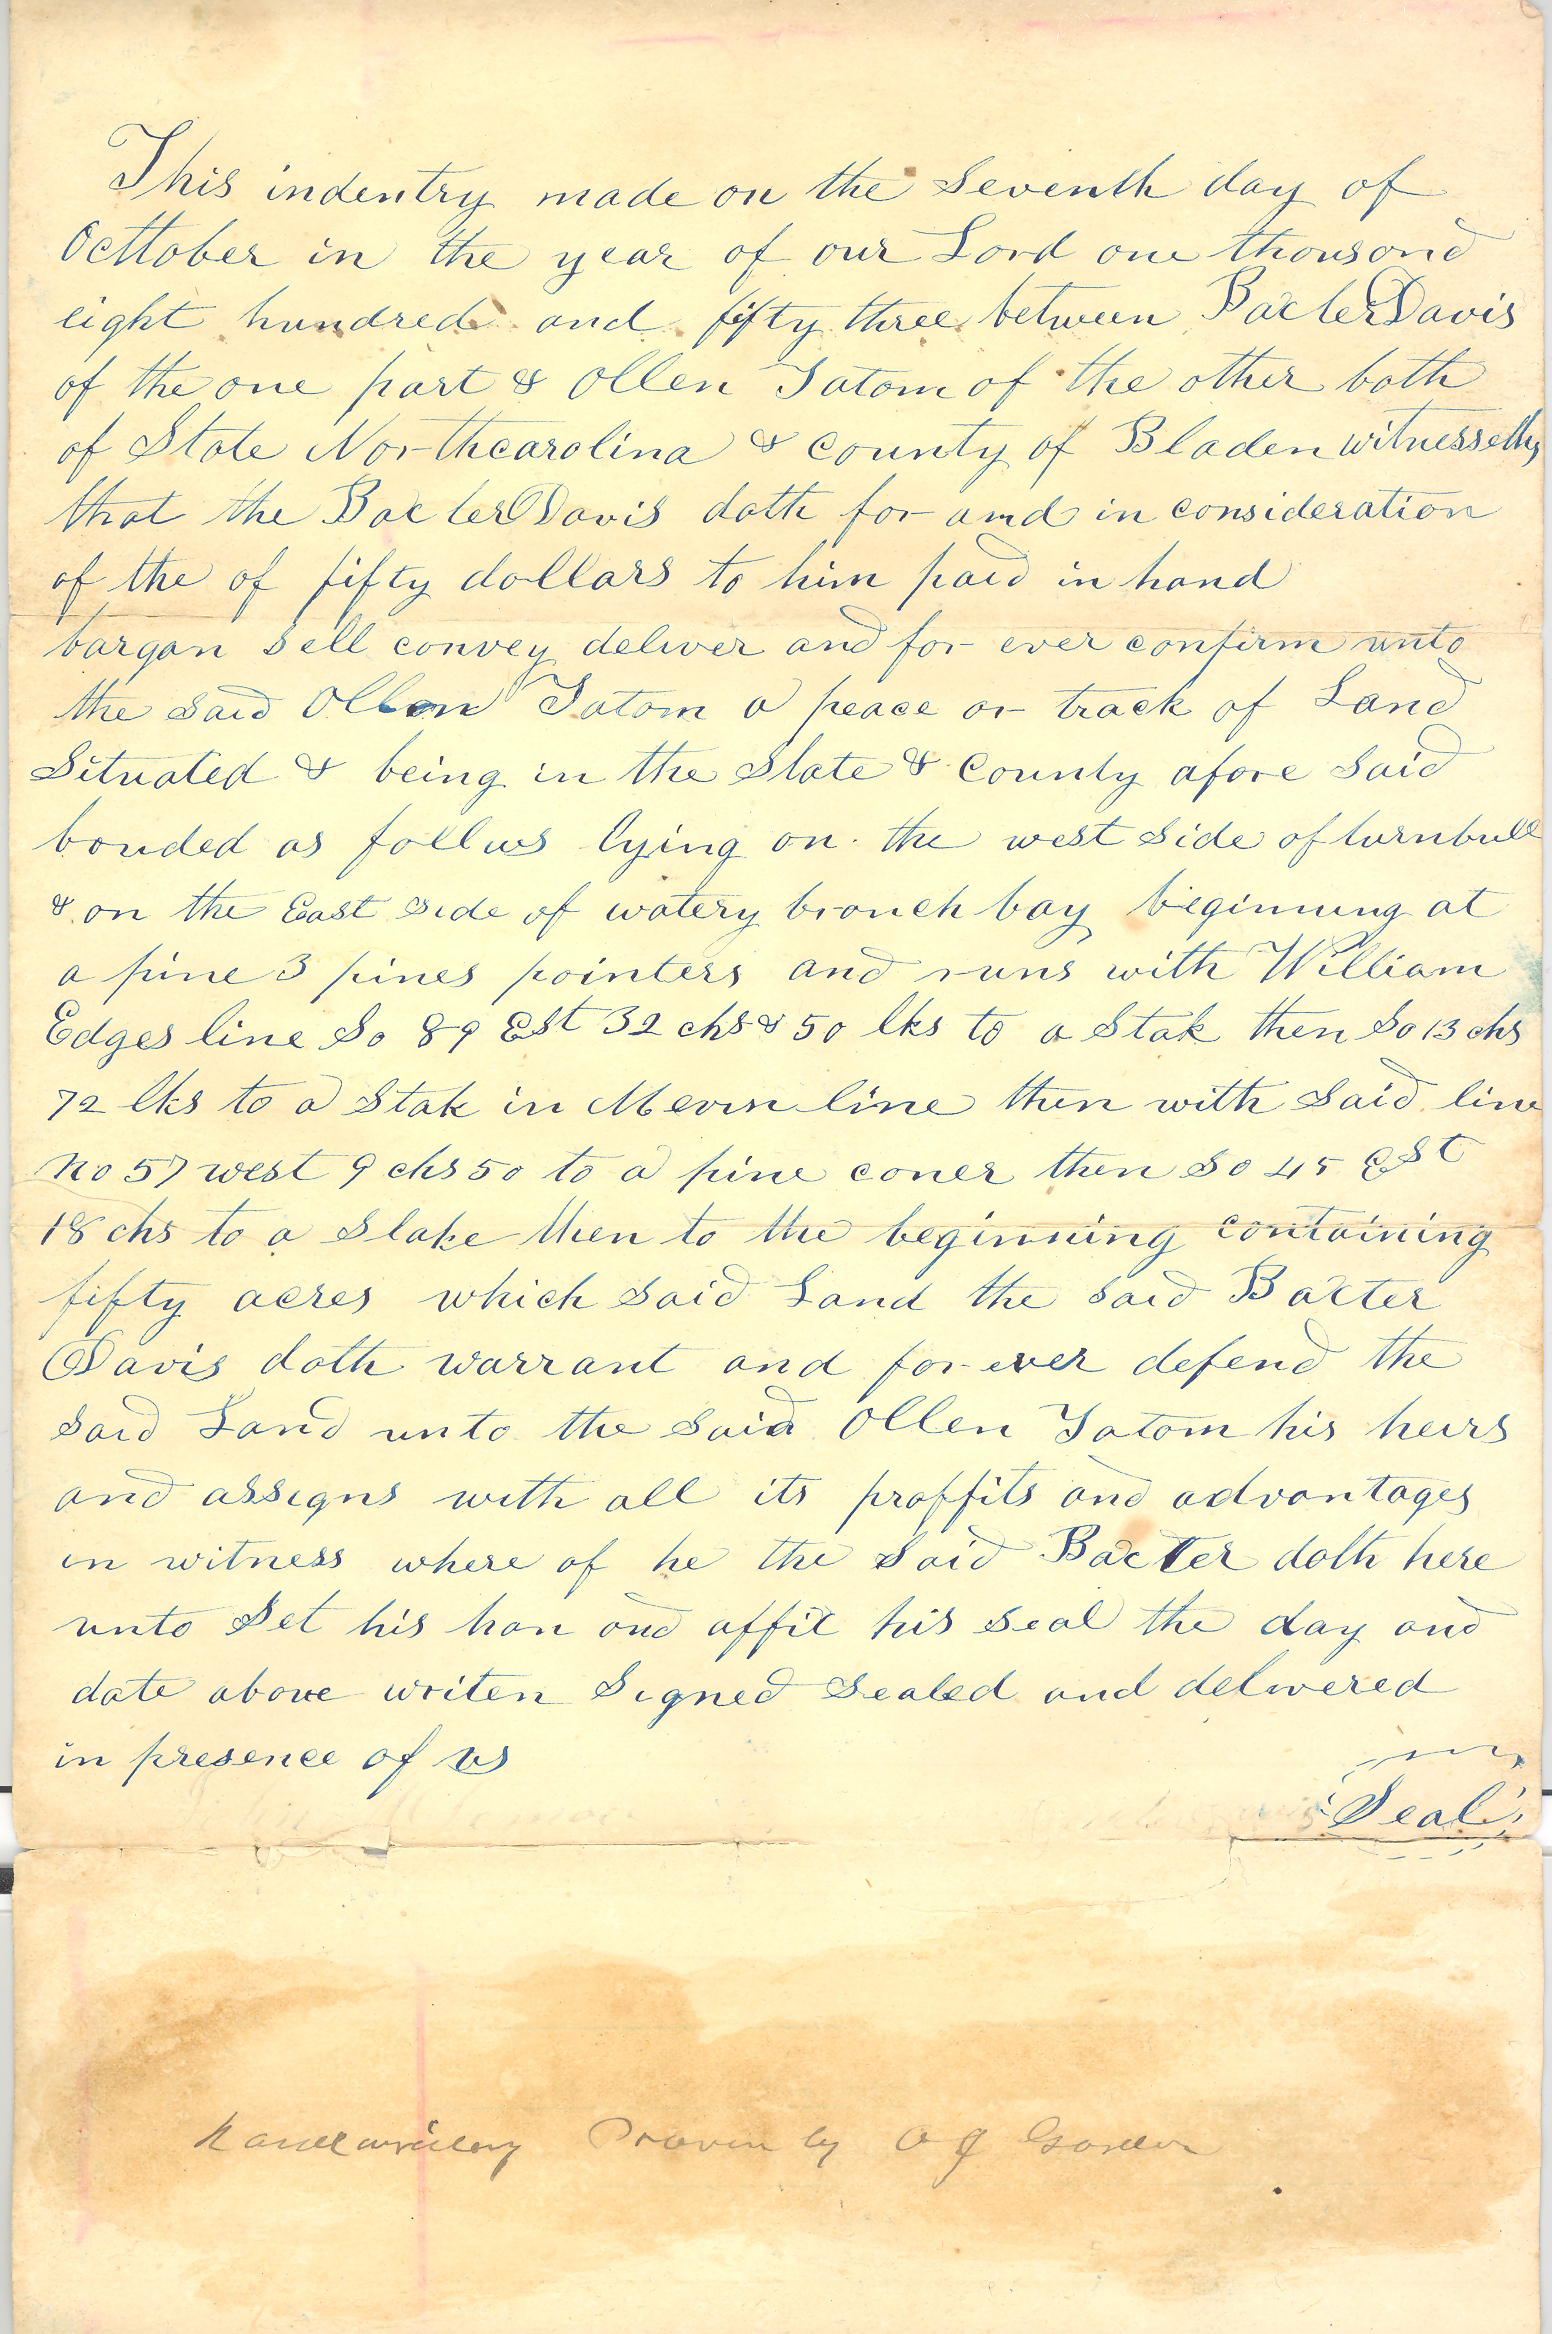 This indentry made on the Seventh day of
Octtober in the year of our Lord one thousand
eight hundred and fifty three between Baxter Davis
of the one part & Ollen Tatom of the other both
of State Northcarolina & county of Bladen witnesseth
that the Baxter Davis doth for amd in consideration
of the of fifty dollars to him paid in hand
bargan sell convey deliver and for ever confirm unto
the said Ollen Tatom a peace or track of Land
Situated & being in the State & County afore said
bouded as follws lying on the west side of turnbull
& on the East side of watery branch bay beginning at
a pine 3 pines pointers and runs with William
Edges line So 89 Est 32 chs & 50 lks to a Stak then So 13 chs
72 lks to a Stak in line then with said line
no 57 west 9 chs 50 to a pine coner then So 45 Est
18 chs to a Stake then to the beginning containing
fifty acres which said Land the said Baxter
Davis doth warrant and for ever defend the
said Land unto the said Ollen Tatom his heirs
and assigns with all its proffits and advantages
in witness where of he the said Baxter doth here
unto Set his han and affix his seal the day and
date above writen Signed Sealed and delivered
in presence of us
Seal
Handwriting Proven by